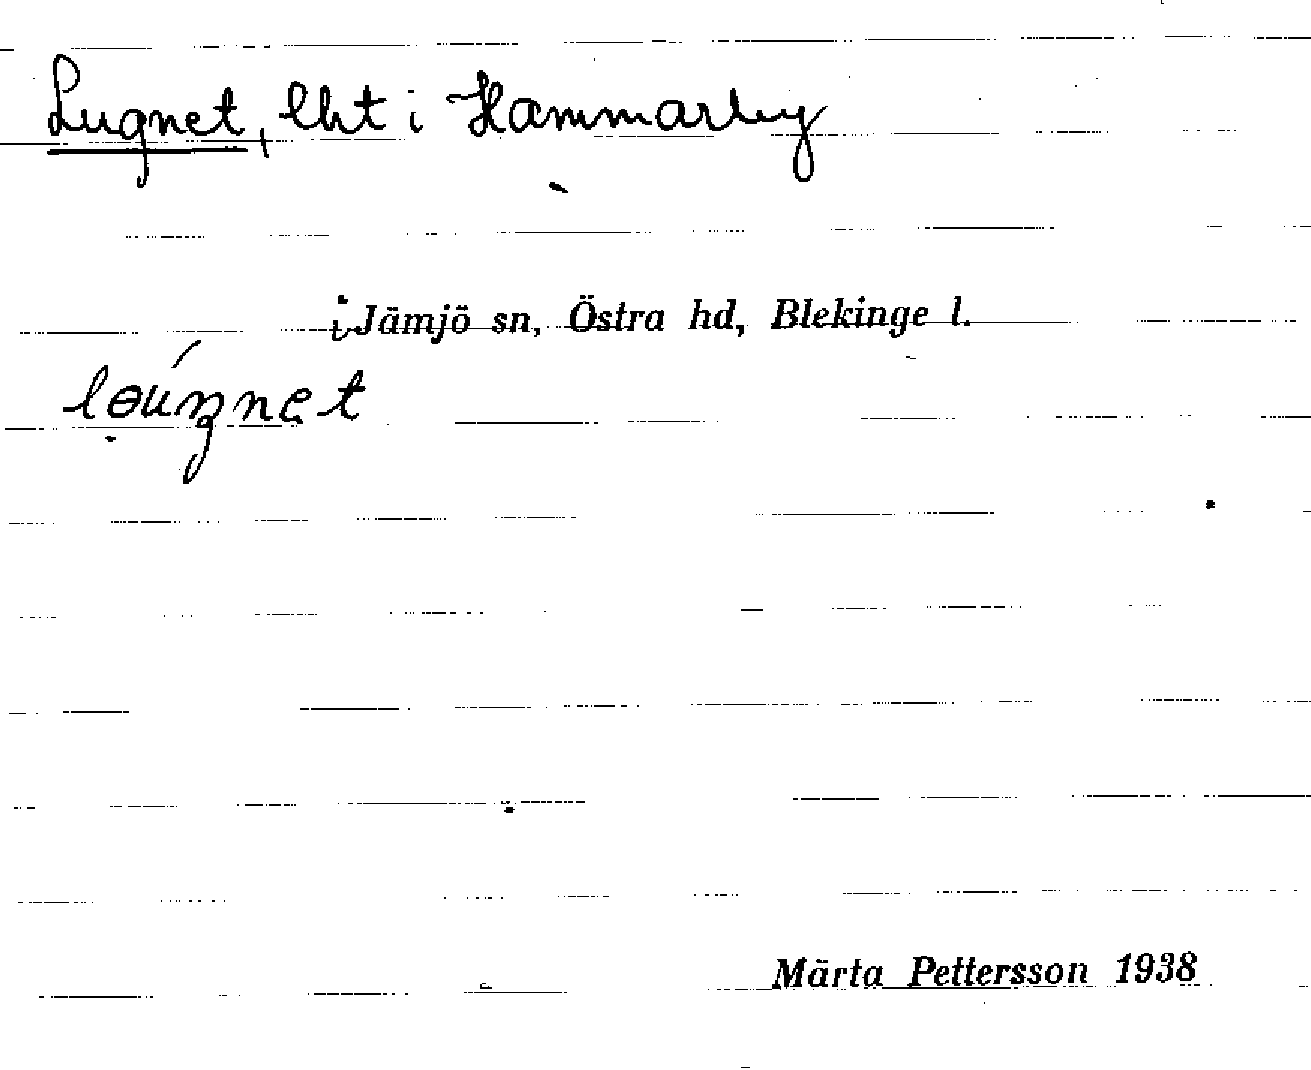 Lugnet, lht i Hammarby
i Jämjö sn, Östra hd, Blekinge l.
lɵúŋnet
Märta Pettersson 1938